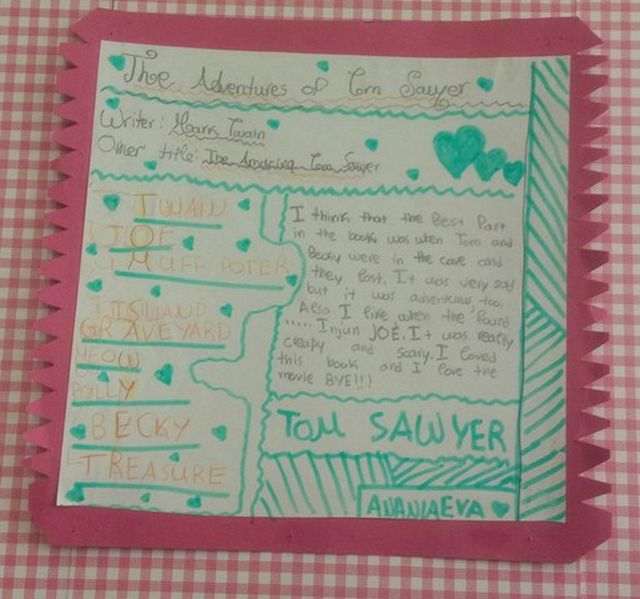 The Adventures of Tom Sawyer
Writer: Mearks Twain
Other title: The Amazing Tom Sawyer
TWAIN
JOE
MUFF POTER
ISLAND
GRAVEYARD
MEOW
POLLY
BECKY
TREASURE
I think that the Best Part
in the book was when Tom and
Becky were in the cave and
they lost. It was very sad
but it was too.
Also I like when the found
..... Injun JOE. It was really
creapy and scary. I loved
this book and I love the
movie BYE!!!
TOM SAWYER
ANANIAEVA